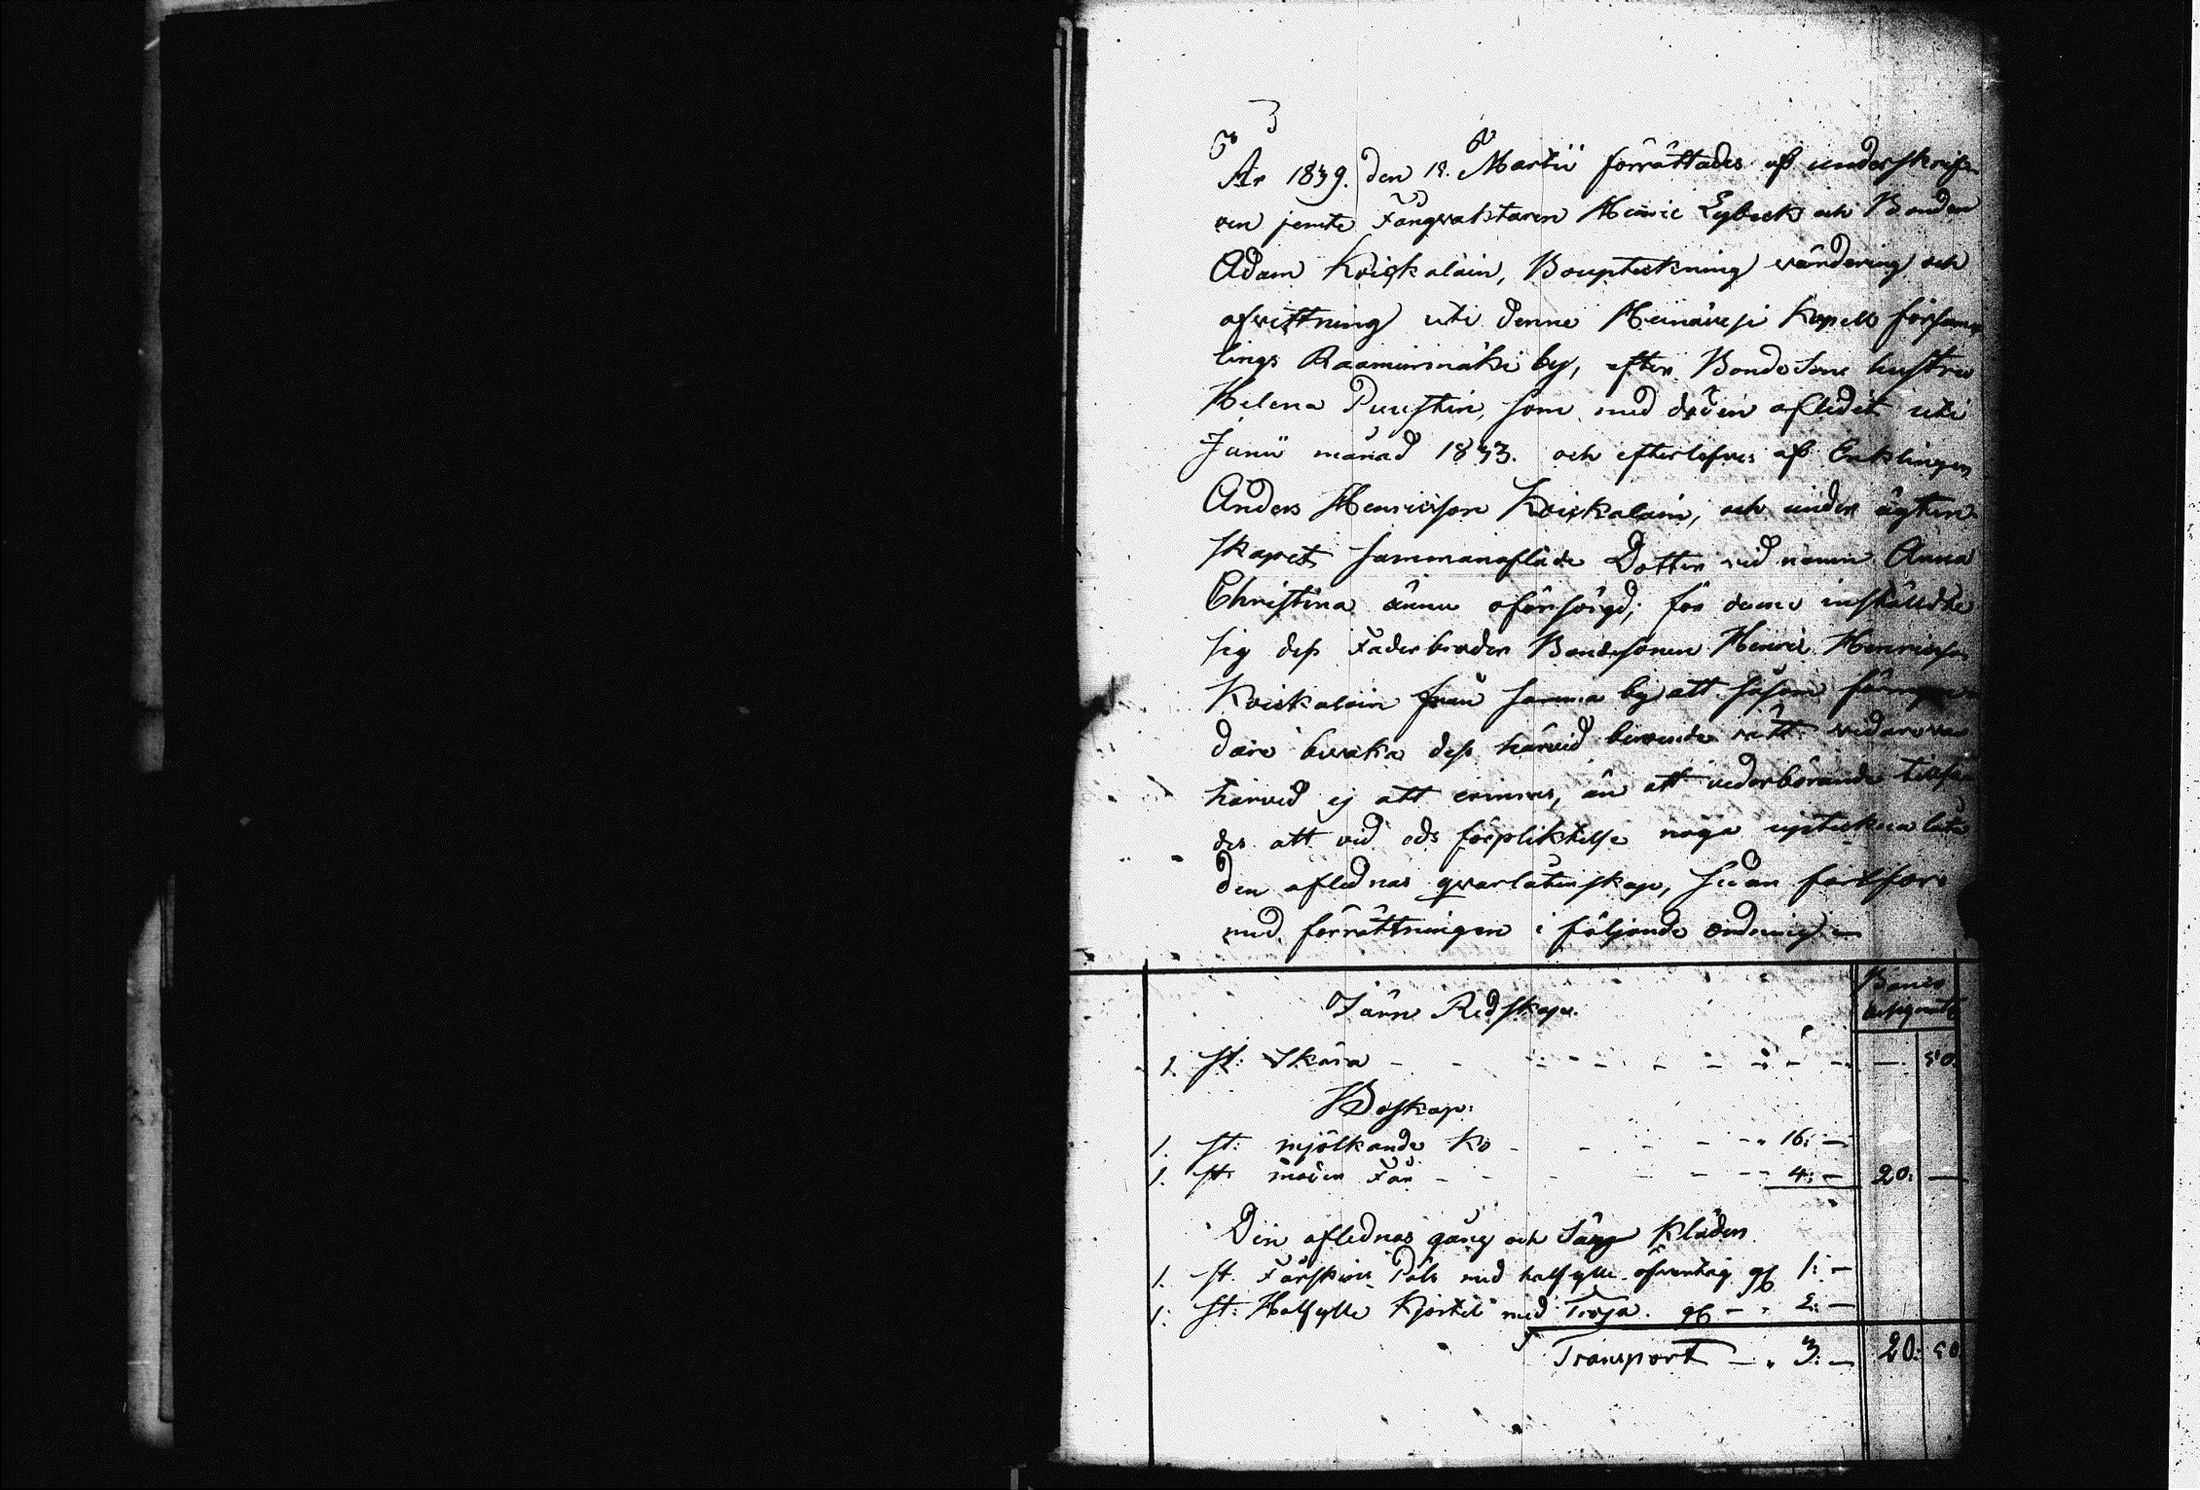 År 1839. den 18. Martii förrättades af underskrif-
ven jemte Fångvaktaren Henric Lybeck och Bonden
Adam Kviskalain, Bouptekning värdering och
afvittring uti denne Heinävesi Kapells församm-
lings Raaminmäki by, efter Bondesons hustru
Helena Puustin, som med döden aflidit uti
Junii månad 1833. och efterlefves af Enklingen
Anders Henricsson Kviskalain, och under ägten-
skapet sammanaflade Dotter vid namn Anna
Christina ännu oförsörgd; för denne inställdte
sig dess Faderbroder Bondesonen Henric Henricsson
Kviskalain från samma by att såsom förmyn-
dare bevaka dess härvid beroende rätt vidare va
härvid ej att erinras, än att vederbörande tillsa-
des att vid eds förpliktelse noga uptekna låta
den aflednas qvarlåtenskap, sedan fortfors
med förrättningen i följande ordning
Banco
Assignate
Järn Redskap.
1. st: Skära — 50.
Boskap:
1. st: mjölkande Ko 16: —
1. st: moder Får 4: — 20: —
Den aflednas gång och Säng Kläder
1. st. Fårskins Päls med halfylle öfvertåg gl 1: —
1. st: Halfylle Kjortel med Tröja. gl 2: —
Transport 3: — 20: 50